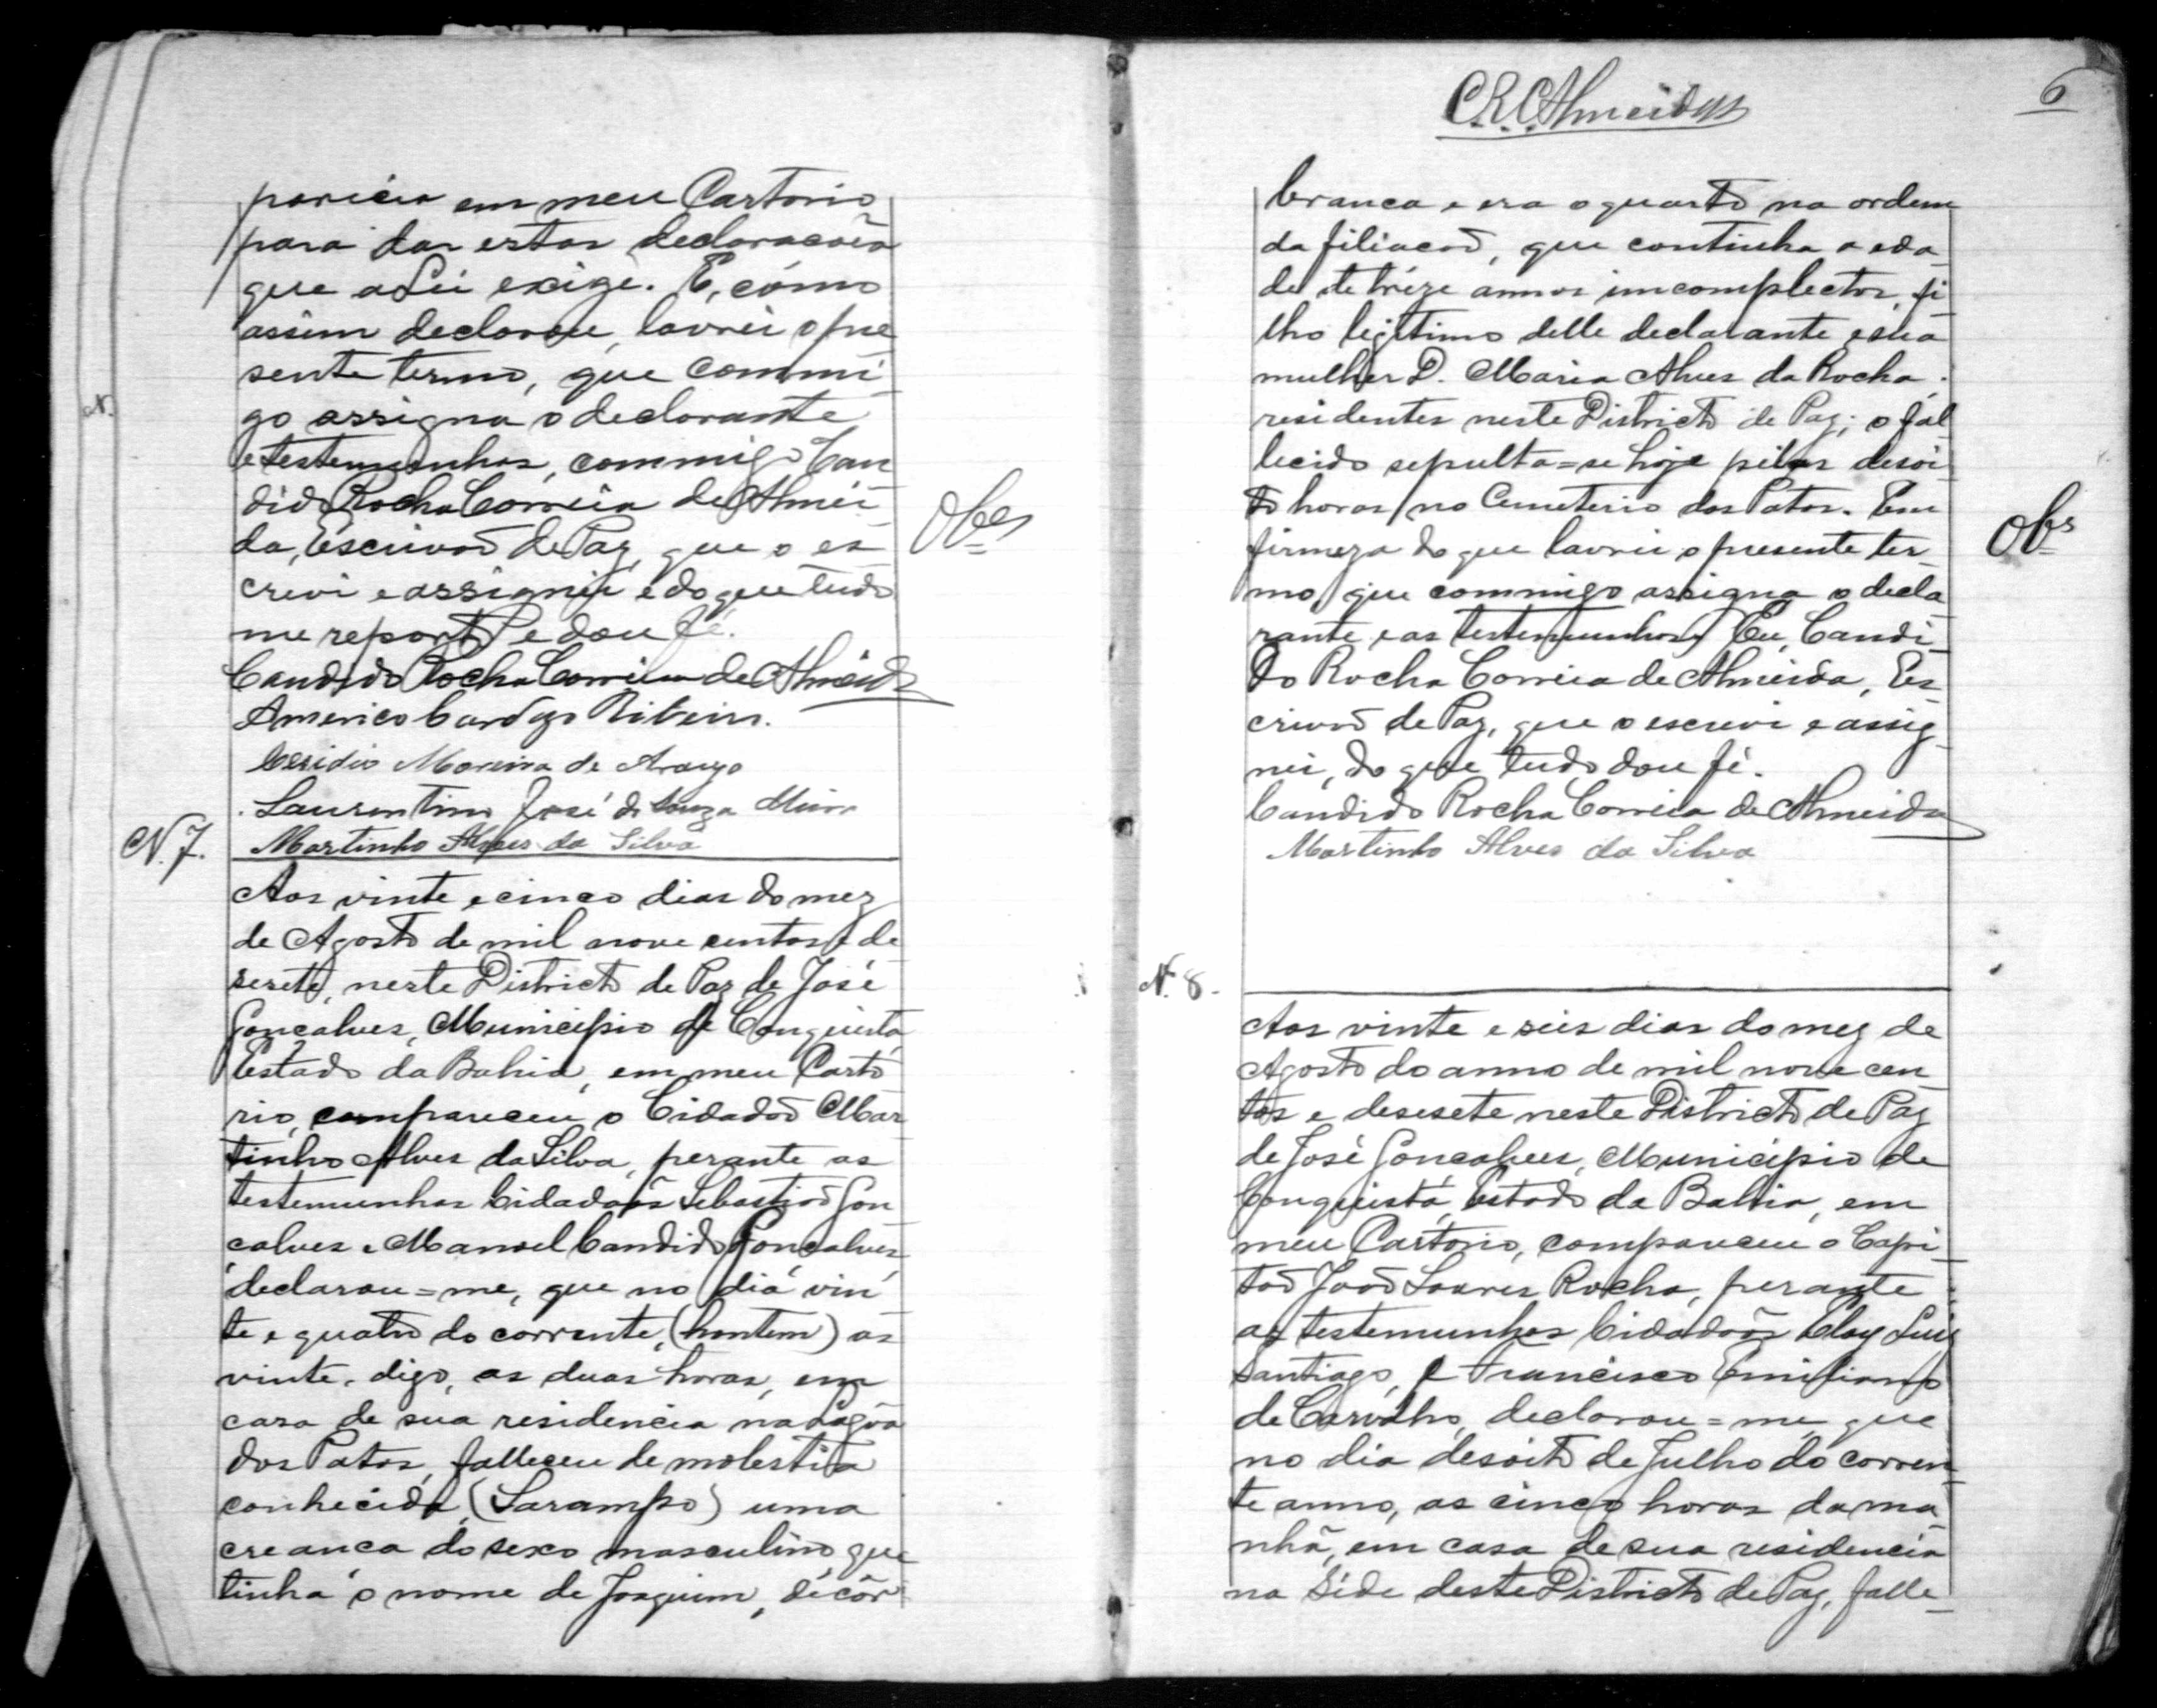 pareceu em meu Cartorio
para dar estas declaracoẽs
que a Lei exige. E, cómo
assim declarou, lavrei o pre
sente termo, que commi
go assigna o declarante
e testemunhas, commigo Can
dido Rocha Correia de Almei
da, Escrivaõ de Paz, que o es
crevi e assignei e do que tudo
me reporto e dou fé.
Obs
Candido Rocha Correia de Almeida
Americo Cardozo Ribeiro.
Cesidio Moreira de Araujo
Laurentino José de Souza
Martinho Alves da Silva
N. 7.
Aos vinte e cinco dias do mez
de Agosto de mil nove centos e de
sesete, neste Districto de Paz de José
Gonçalves, Municipio de Conquista
Estado da Bahia, em meu Carto
rio, compareceu o Cidadaõ Mar
tinho Alves da Silva, perante as
testemunhas Cidadaõs Sebastiaõ Gon
calves e Manoel Candido Gonçalves,
declarou=me, que no dia vin
te e quatro do corrente, (hontem) as
vinte, digo, as duas horas, em
casa de sua residencia na Lagôa
dos Patos, falleceu de molestia
conhecida, (Sarampo) uma
creanca do sexo masculino que
tinha o nome de Joaquim, de côr
C.R.C.Almeida
6
branca e era o quarto na ordem
da filiacaõ, que continha a eda
de de trêze annos imcomplectos, fi
lho legitimo delle declarante e sua
mulher D. Maria Alves da Rocha.
residentes neste Districto de Paz; o fal
lecido sepulta=se hoje pelas desoi
to horas no Cemeterio dos Patos. Em
firmeza do que lavrei o presente ter
mo, que commigo assigna o decla
rante e as testemunhas Eu, Candi
do Rocha Correia de Almeida, Es
crivaõ de Paz, que o escrevi e assig
nei, do que tudo dou fé.
Obs
Candido Rocha Correia de Almeida
Martinho Alves da Silva
N. 8.
Aos vinte e seis dias do mez de
Agosto do anno de mil nove cen
tos e desesete neste Districto de Paz
de José Goncalves, Municipio de
Conquista, Estado da Bahia, em
meu Cartorio, compareceu o Capi
taõ Joaõ Soares Rocha, perante
as testemunhas Cidadaõs Eloy Luiz
Santiago, e Francisco Emiliano
de Carvalho, declarou=me, que
no dia desoito de Julho do corren
te anno, as cinco horas da ma
nhã, em casa de sua residencia
na Séde deste Districto de Paz, falle